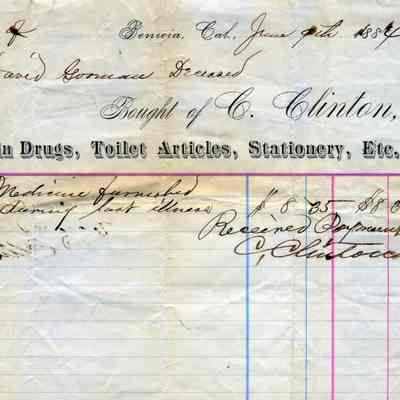 of Benicia, Cal., June 9th 1884
David Gorman Deceased
Bought of C. Clinton,
in Drugs, Toilet Articles, Stationery, Etc.
Medicine furnished
during last illness $ 8 05 $8 0
Received Payment
C, Clinton